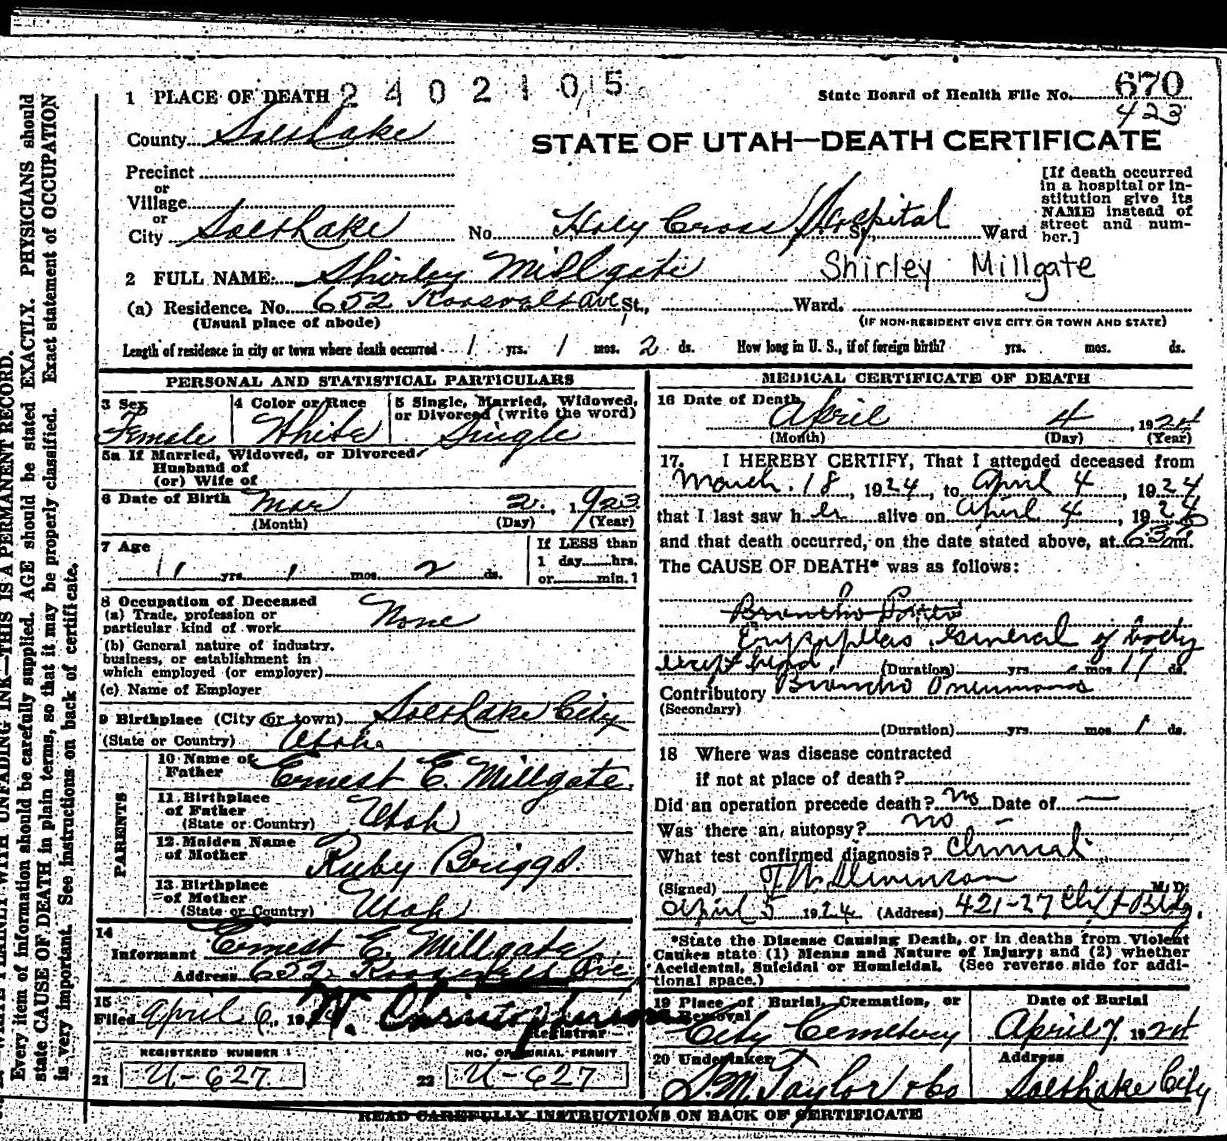 1 PLACE OF DEATH 2402105
State Board of Health File No. 670
423
County Salt Lake
STATE OF UTAH—DEATH CERTIFICATE
Precinct
or
Village
or
City Salt Lake No. Holy Cross Hospital St., Ward
[If death occurred
in a hospital or in-
stitution give its
NAME instead of
street and num-
ber.]
2 FULL NAME: Shirley Millgate Shirley Millgate
(a) Residence. No. 652 Roosevelt ave St., Ward.
(Usual place of abode) (IF NON-RESIDENT GIVE CITY OR TOWN AND STATE)
Length of residence in city or town where death occurred 1 yrs. 1 mos. 2 ds. How long in U. S., if of foreign birth? yrs. mos. ds.
PERSONAL AND STATISTICAL PARTICULARS
3 Sex 4 Color or Race 5 Single, Married, Widowed,
or Divorced (write the word)
Female White Single
5a If Married, Widowed, or Divorced
Husband of
(or) Wife of
6 Date of Birth Mar 2, 1923
(Month) (Day) (Year)
7 Age
1 yrs. 1 mos. 2 ds.
If LESS than
1 day hrs.
or min.?
8 Occupation of Deceased
(a) Trade, profession or
particular kind of work None
(b) General nature of industry,
business, or establishment in
which employed (or employer)
(c) Name of Employer
9 Birthplace (City or town) Salt Lake City
(State or Country) Utah
PARENTS
10 Name of
Father Ernest E. Millgate
11 Birthplace
of Father
(State or Country) Utah
12 Maiden Name
of Mother Ruby Briggs.
13 Birthplace
of Mother
(State or Country) Utah
14
Informant Ernest E. Millgate
Address 652 Roosevelt Ave
15
Filed April 6, 19 W. Christopherson
Registrar
REGISTERED NUMBER NO. OF BURIAL PERMIT
21 U-627 22 U-627
MEDICAL CERTIFICATE OF DEATH
16 Date of Death April 4, 1924
(Month) (Day) (Year)
17. I HEREBY CERTIFY, That I attended deceased from
March 18, 1924, to April 4, 1924
that I last saw her alive on April 4, 1924
and that death occurred, on the date stated above, at m.
The CAUSE OF DEATH* was as follows:
Broncho
Erysipelas General of body
except head (Duration) yrs. mos. 17 ds.
Contributory Broncho Pneumonia
(Secondary)
(Duration) yrs. mos. 1 ds.
18 Where was disease contracted
if not at place of death?
Did an operation precede death? no Date of —
Was there an autopsy? no —
What test confirmed diagnosis? Clinical
(Signed) M. D.
April 5 1924 (Address) 421-27 Clift Bldg.
*State the Disease Causing Death, or in deaths from Violent
Causes state (1) Means and Nature of Injury; and (2) whether
Accidental, Suicidal or Homicidal. (See reverse side for addi-
tional space.)
19 Place of Burial, Cremation, or Date of Burial
Removal
City Cemetery April 7, 1924
20 Undertaker Address
S. M. Taylor & Co Salt Lake City
READ CAREFULLY INSTRUCTIONS ON BACK OF CERTIFICATE
WRITE PLAINLY WITH UNFADING INK—THIS IS A PERMANENT RECORD.
Every item of information should be carefully supplied. AGE should be stated EXACTLY. PHYSICIANS should
state CAUSE OF DEATH in plain terms, so that it may be properly classified. Exact statement of OCCUPATION
is very important. See instructions on back of certificate.